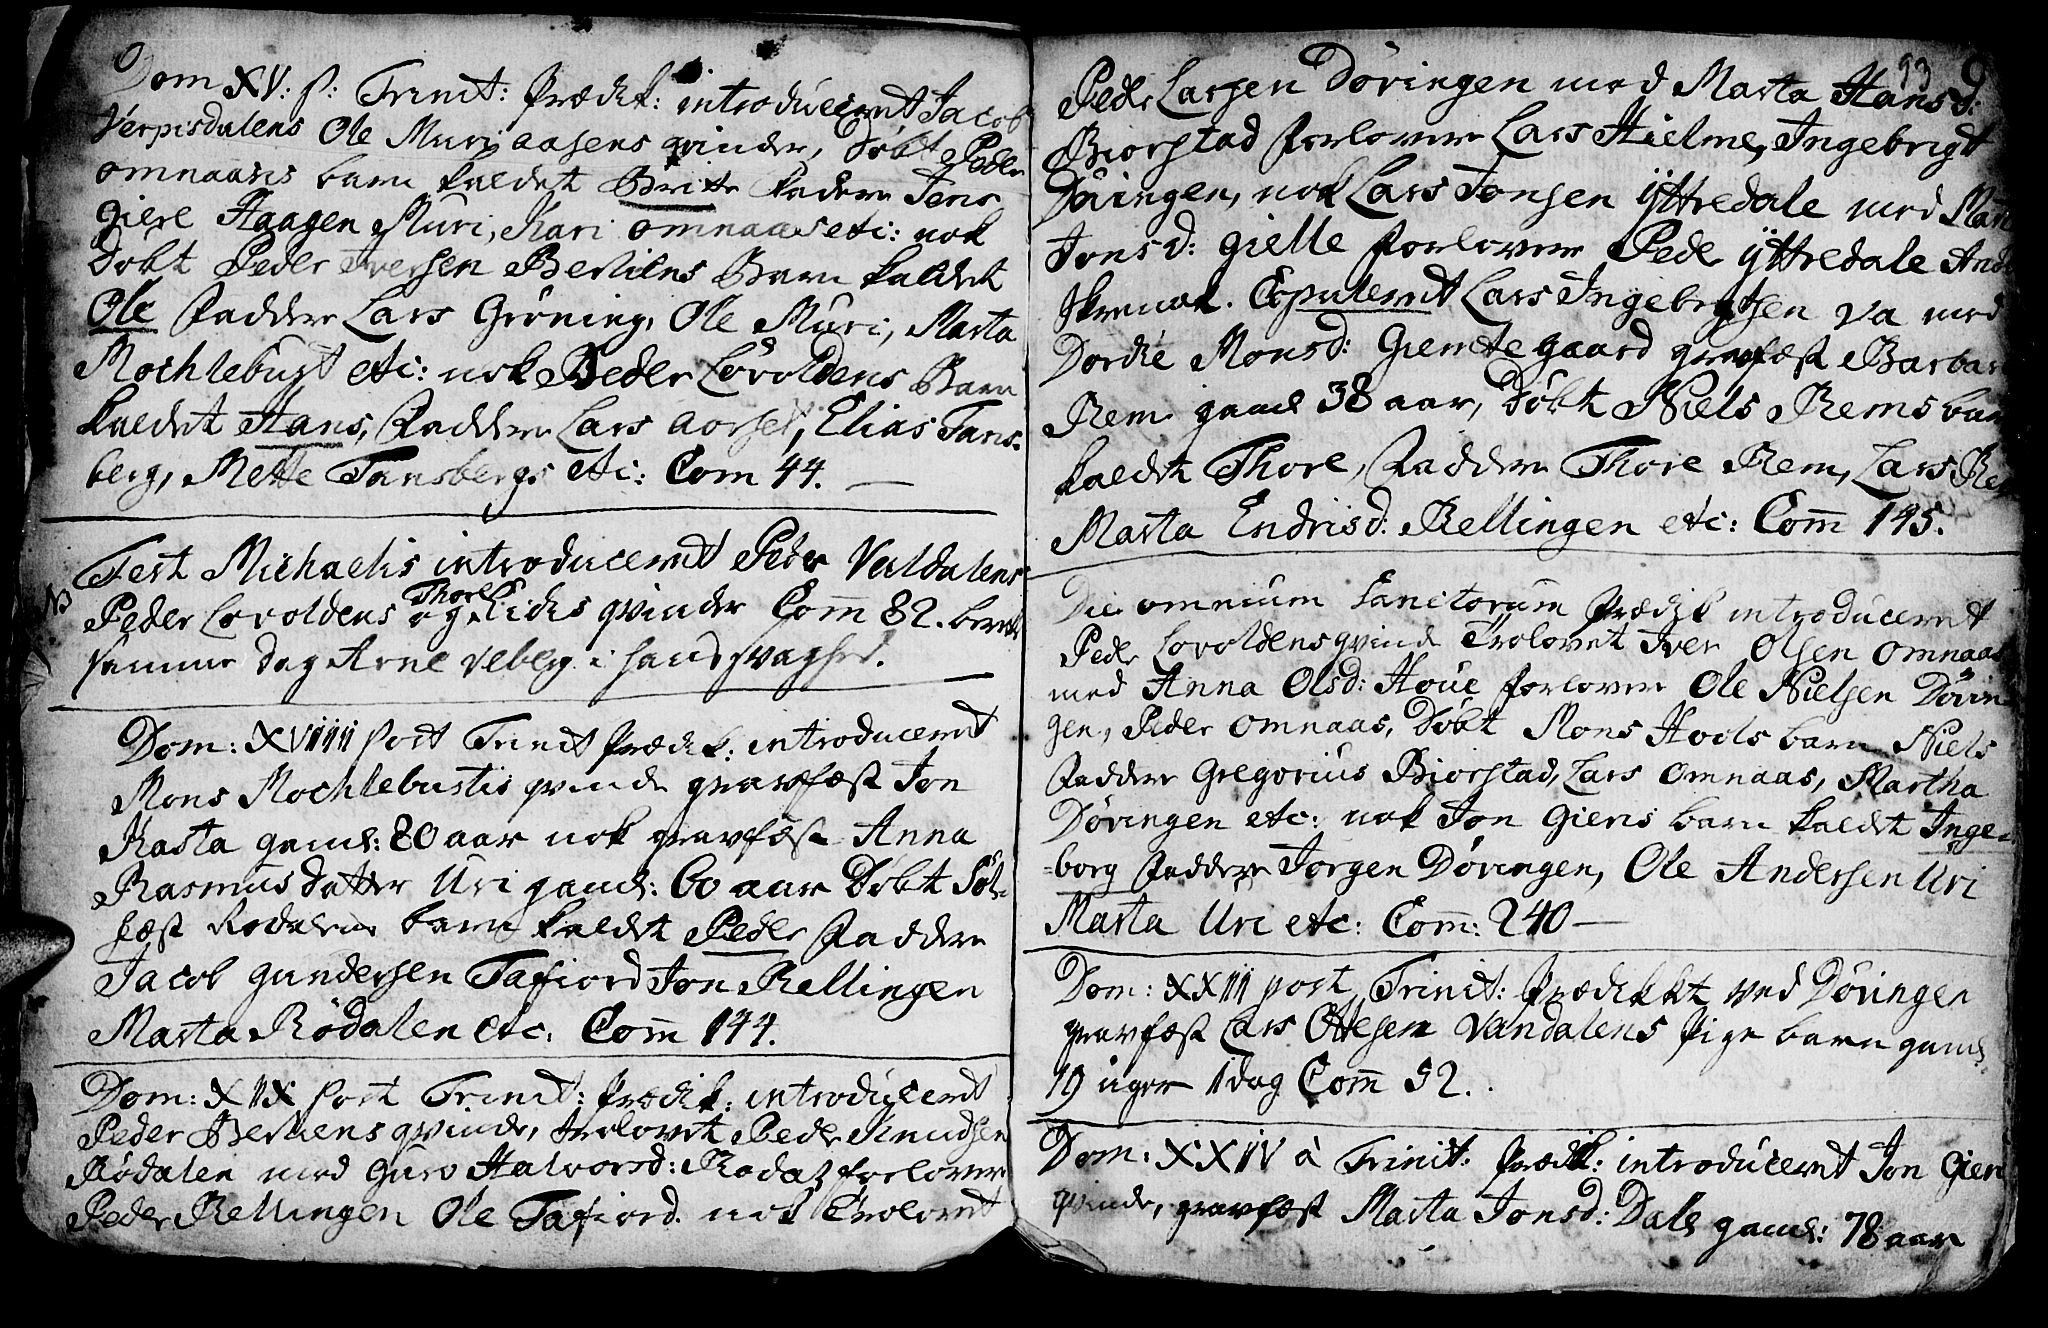 Dom XV: p: Trinit: Prædik: introduceret Jacob
Verpisdalens Ole Muri aasens qvinder, Døbt Peder
omnaases barn kaldet Britte fadder Jens
Giere Haagen Muri, Kari omnaas etc: nok
Døbt Peder Iversen Berliens Barn kaldet
Ole Fadder Lars Grøning, Ole Muri, Marta
Mochlebust etc: nok Peder Løvoldens Barn
kaldet Hans, Fadder Lars Aorset, Elias Tans-
berg, Mette Tansbergs etc: Com 44.
Fest Michaelis introduceret Peder Valdalens
NB Peder Lovoldens og Thore Eides qvinder Comm 82. beret
samme dag Arne veberg i hans svaghed.
Dom: XVIIII post Trinit Prædik: introduceret
Mons Mochlebustis qvinde gravfæst Jon
Kasta gaml: 80 aar nok gravfæst Anna
Rasmusdatter Uri gaml: 60 aar Døbt Søl-
fæst Rødalens barn kaldet Peder Fadder
Jacob Gundersen Tafiord Jon Rellingen
Marta Rødalen etc: Comm 144.
Dom: XIX post Trinit: Prædik: introduceret
Peder Berliens qvinde, trolovet Peder Knudsen
Rødalen med Guro Halvorsd: Rødal forlover
Peder Rellingen Ole Tafiord. nok Trolovet
93
Peder Larsen Døvingen med Marta Hansd:
Biorstad forlover Lars Hielme, Ingebrigt
Døvingen, nok Lars Jonsen Ÿttredale med Mari
Jonsd: Gielle forlover Peder ÿttredale And
Skrenak. Copuleret Lars Ingebrigtsen Va med
Dordie Monsd: Giemtegaard gravfæst Barbar
Rem gaml 38 aar, Døbt Niels Rems barn
kaldet Thore, Fadder Thore Rem, Lars Re
Marta Endrisd: Rellingen etc: Comm 145.
Die omnium Sanctorum Prædik introduceret
Peder Lovoldens qvinde Trolovet Iver Olsen omnaas
med Anna Olsd: Houe forlover Ole Nielsen Døvin
gen, Peder omnaas, Døbt Mons Hools barn Niels
Fadder Gregorius Biorstad, Lars omnaas, Martha
Døvingen etc: nok Jon Gieris barn kaldet Inge-
-borg Fadder Jørgen Døvingen, Ole Andersen Uri
Marta Uri etc: Comm: 240
Dom: XXIII post Trinit: Prædikket ved Døvingen
gravfæst Lars Olesen Vandalens Pige barn gaml
19 uger 1 dag Comm 52.
Dom: XXIV à Trinit: Prædik: introduceret Jon Gier
qvinde, gravfæst Marta Jonsd: Dale gaml: 78 aar